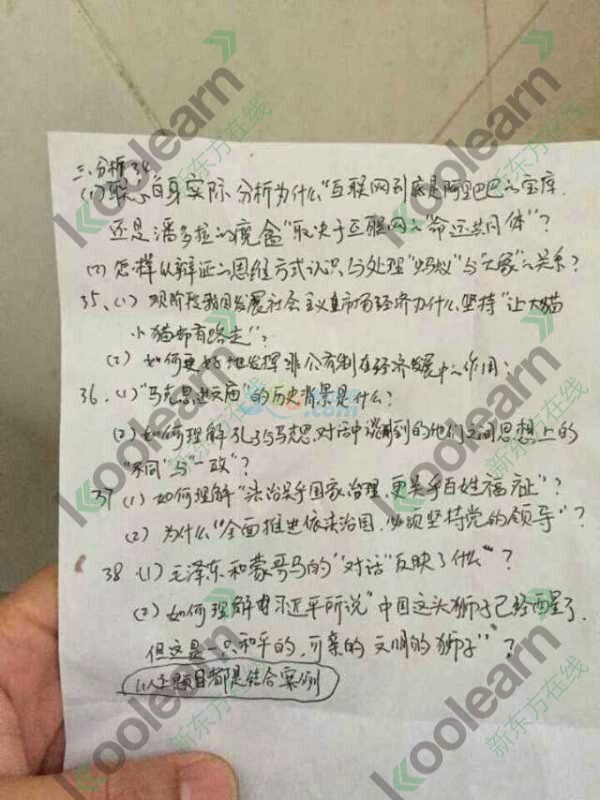 三、分析34
(1) 联系自身实际 分析为什么"互联网到底是阿里巴巴的宝库
还是潘多拉的魔盒"取决于互联网的"命运共同体"?
(2) 怎样从辩证的思维方式认识与处理"蚂蚁"与"大象"的关系?
35、(1) 现阶段我国发展社会主义市场经济为什么坚持"让大猫
小猫都有路走"?
(2) 如何更好地发挥非公有制在经济发展中的作用?
36.(1)"马克思进文庙"的历史背景是什么?
(2) 如何理解孔子与马思对话中谈到的他们之间思想上的
"不同"与"一致"?
37 (1) 如何理解"法治关乎国家治理,更关乎百姓福祉"?
(2) 为什么"全面推进依法治国,必须坚持党的领导"?
38 (1) 毛泽东和蒙哥马的"对话"反映了什么"?
(2) 如何理解习近平所说"中国这头狮子已经醒了,
但这是一只和平的,可亲的 文明的狮子"?
以上题目都是结合案例
koolearn
新东方在线